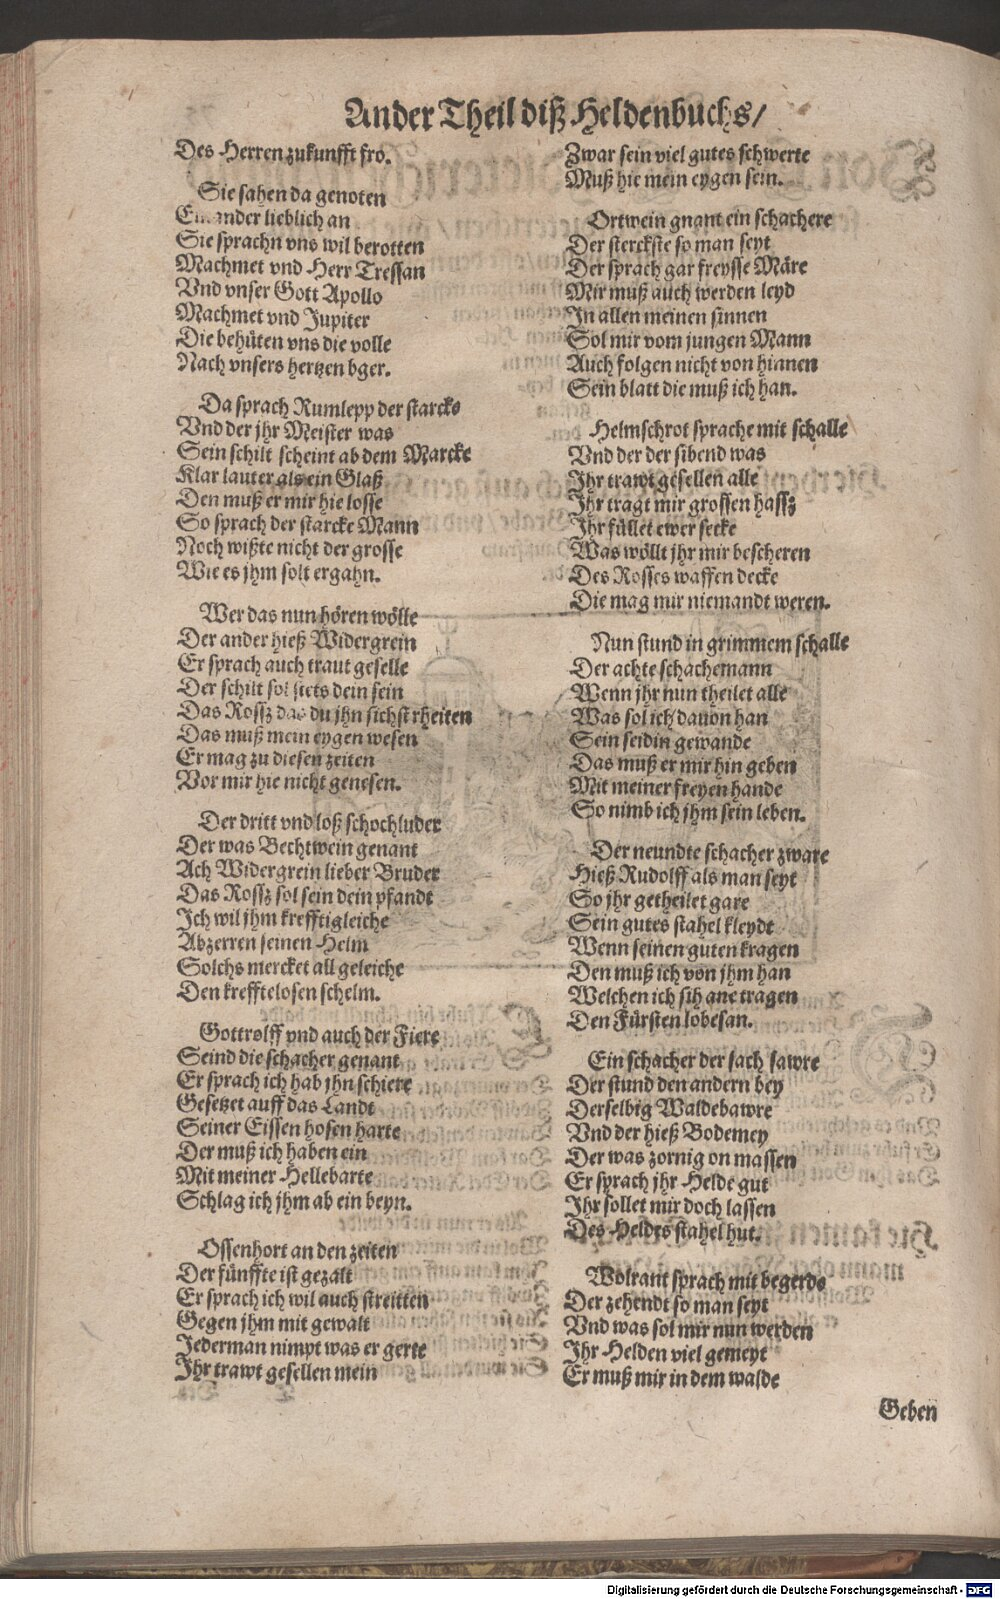 Ander Theil diß Heldenbuchs/
Des Herren zukunfft fro.
Sie sahen da genoten
Einander lieblich an
Sie sprachn vns wil berotten
Machmet vnd Herr Tressan
Vnd vnser Gott Apollo
Machmet vnd Jupiter
Die behüten vns die volle
Nach vnsers hertzen bger.
Da sprach Rumlepp der starcke
Vnd der jhr Meister was
Sein schilt scheint ab dem Marcke
Klar lauter als ein Glaß
Den muß er mir hie losse
So sprach der starcke Mann
Noch wißte nicht der grosse
Wie es jhm solt ergahn.
Wer das nun hören wölle
Der ander hieß Widergrein
Er sprach auch traut geselle
Der schilt sol stets dein sein
Das Rossz das du jhn sichst rheiten
Das muß mein eygen wesen
Er mag zu diesen zeiten
Vor mir hie nicht genesen.
Der dritt vnd loß schochluder
Der was Bechtwein genant
Ach Widergrein lieber Bruder
Das Rossz sol sein dein pfandt
Ich wil jhm krefftigleiche
Abzerren seinen Helm
Solchs mercket all geleiche
Den krefftelosen schelm.
Gottrolff vnd auch der Fiere
Seind die schacher genant
Er sprach ich hab jhn schiere
Gesetzet auff das Landt
Seiner Eissen hosen harte
Der muß ich haben ein
Mit meiner Hellebarte
Schlag ich jhm ab ein beyn.
Ossenhort an den zeiten
Der fünffte ist gezalt
Er sprach ich wil auch streitten
Gegen jhm mit gewalt
Jederman nimpt was er gerte
Ihr trawt gesellen mein
Zwar sein viel gutes schwerte
Muß hie mein eygen sein.
Ortwein gnant ein schachere
Der sterckste so man seyt
Der sprach gar freysse Märe
Mir muß auch werden leyd
In allen meinen sinnen
Sol mir vom jungen Mann
Auch folgen nicht von hianen
Sein blatt die muß ich han.
Helmschrot sprache mit schalle
Vnd der der sibend was
Ihr trawt gesellen alle
Ihr tragt mir grossen hassz
Ihr füllet ewer secke
Was wöllt jhr mir bescheren
Des Rosses waffen decke
Die mag mir niemandt weren.
Nun stund in grimmem schalle
Der achte schachemann
Wenn jhr nun theilet alle
Was sol ich dauon han
Sein seidin gewande
Das muß er mir hin geben
Mit meiner freyen hande
So nimb ich jhm sein leben.
Der neundte schacher zware
Hieß Rudolff als man seyt
So jhr getheilet gare
Sein gutes stahel kleydt
Wenn seinen guten kragen
Den muß ich von jhm han
Welchen ich sih ane tragen
Den Fürsten lobesan.
Ein schacher der sach sawre
Der stund den andern bey
Derselbig Waldebawre
Vnd der hieß Bodemey
Der was zornig on massen
Er sprach jhr Helde gut
Ihr sollet mir doch lassen
Des Heldes stahel hut.
Wolrant sprach mit begerde
Der zehendt so man seyt
Vnd was sol mir nun werden
Ihr Helden viel gemeyt
Er muß mir in dem walde
Geben
Digitalisierung gefördert durch die Deutsche Forschungsgemeinschaft - DFG